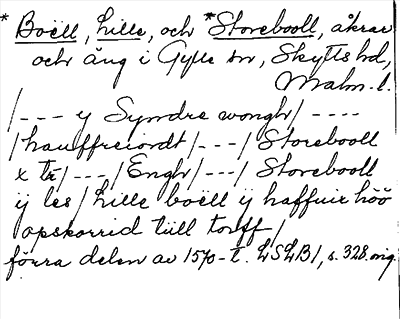 * Boëll, Lille, och * Storeboll, åkrar
och äng i Gylle sn, Skytts hd,
Malm. l.
/--- y Syndre wongh/ ----
/hauffreiordt/---/ Storeboll
x tr/---/Engh/---/ Storeboll
ij les/ Lille boëll ij haffuir höö
opskorrid tiill torff/
förra delen av 1570-t. LSLB1, s. 328. orig.